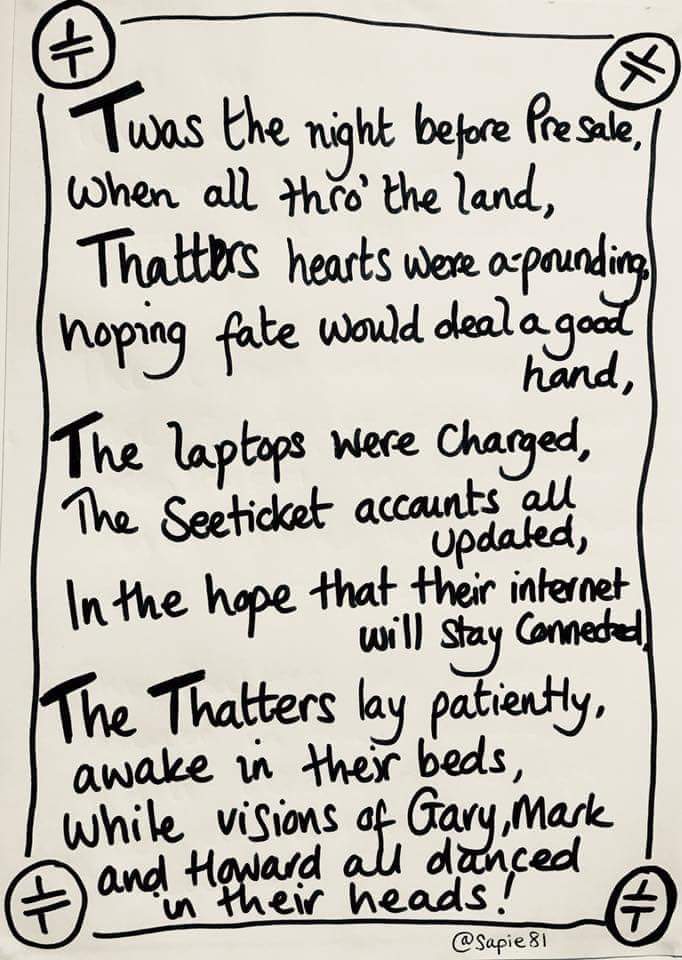 Twas the night before Presale,
When all thro' the land,
Thatters hearts were a-pounding,
hoping fate would deal a good
hand,
The laptops were Charged,
The Seeticket accounts all
updated,
In the hope that their internet
will stay Connected,
The Thatters lay patiently,
awake in their beds,
While visions of Gary, Mark
and Howard all danced
in their heads!
@Sapie81